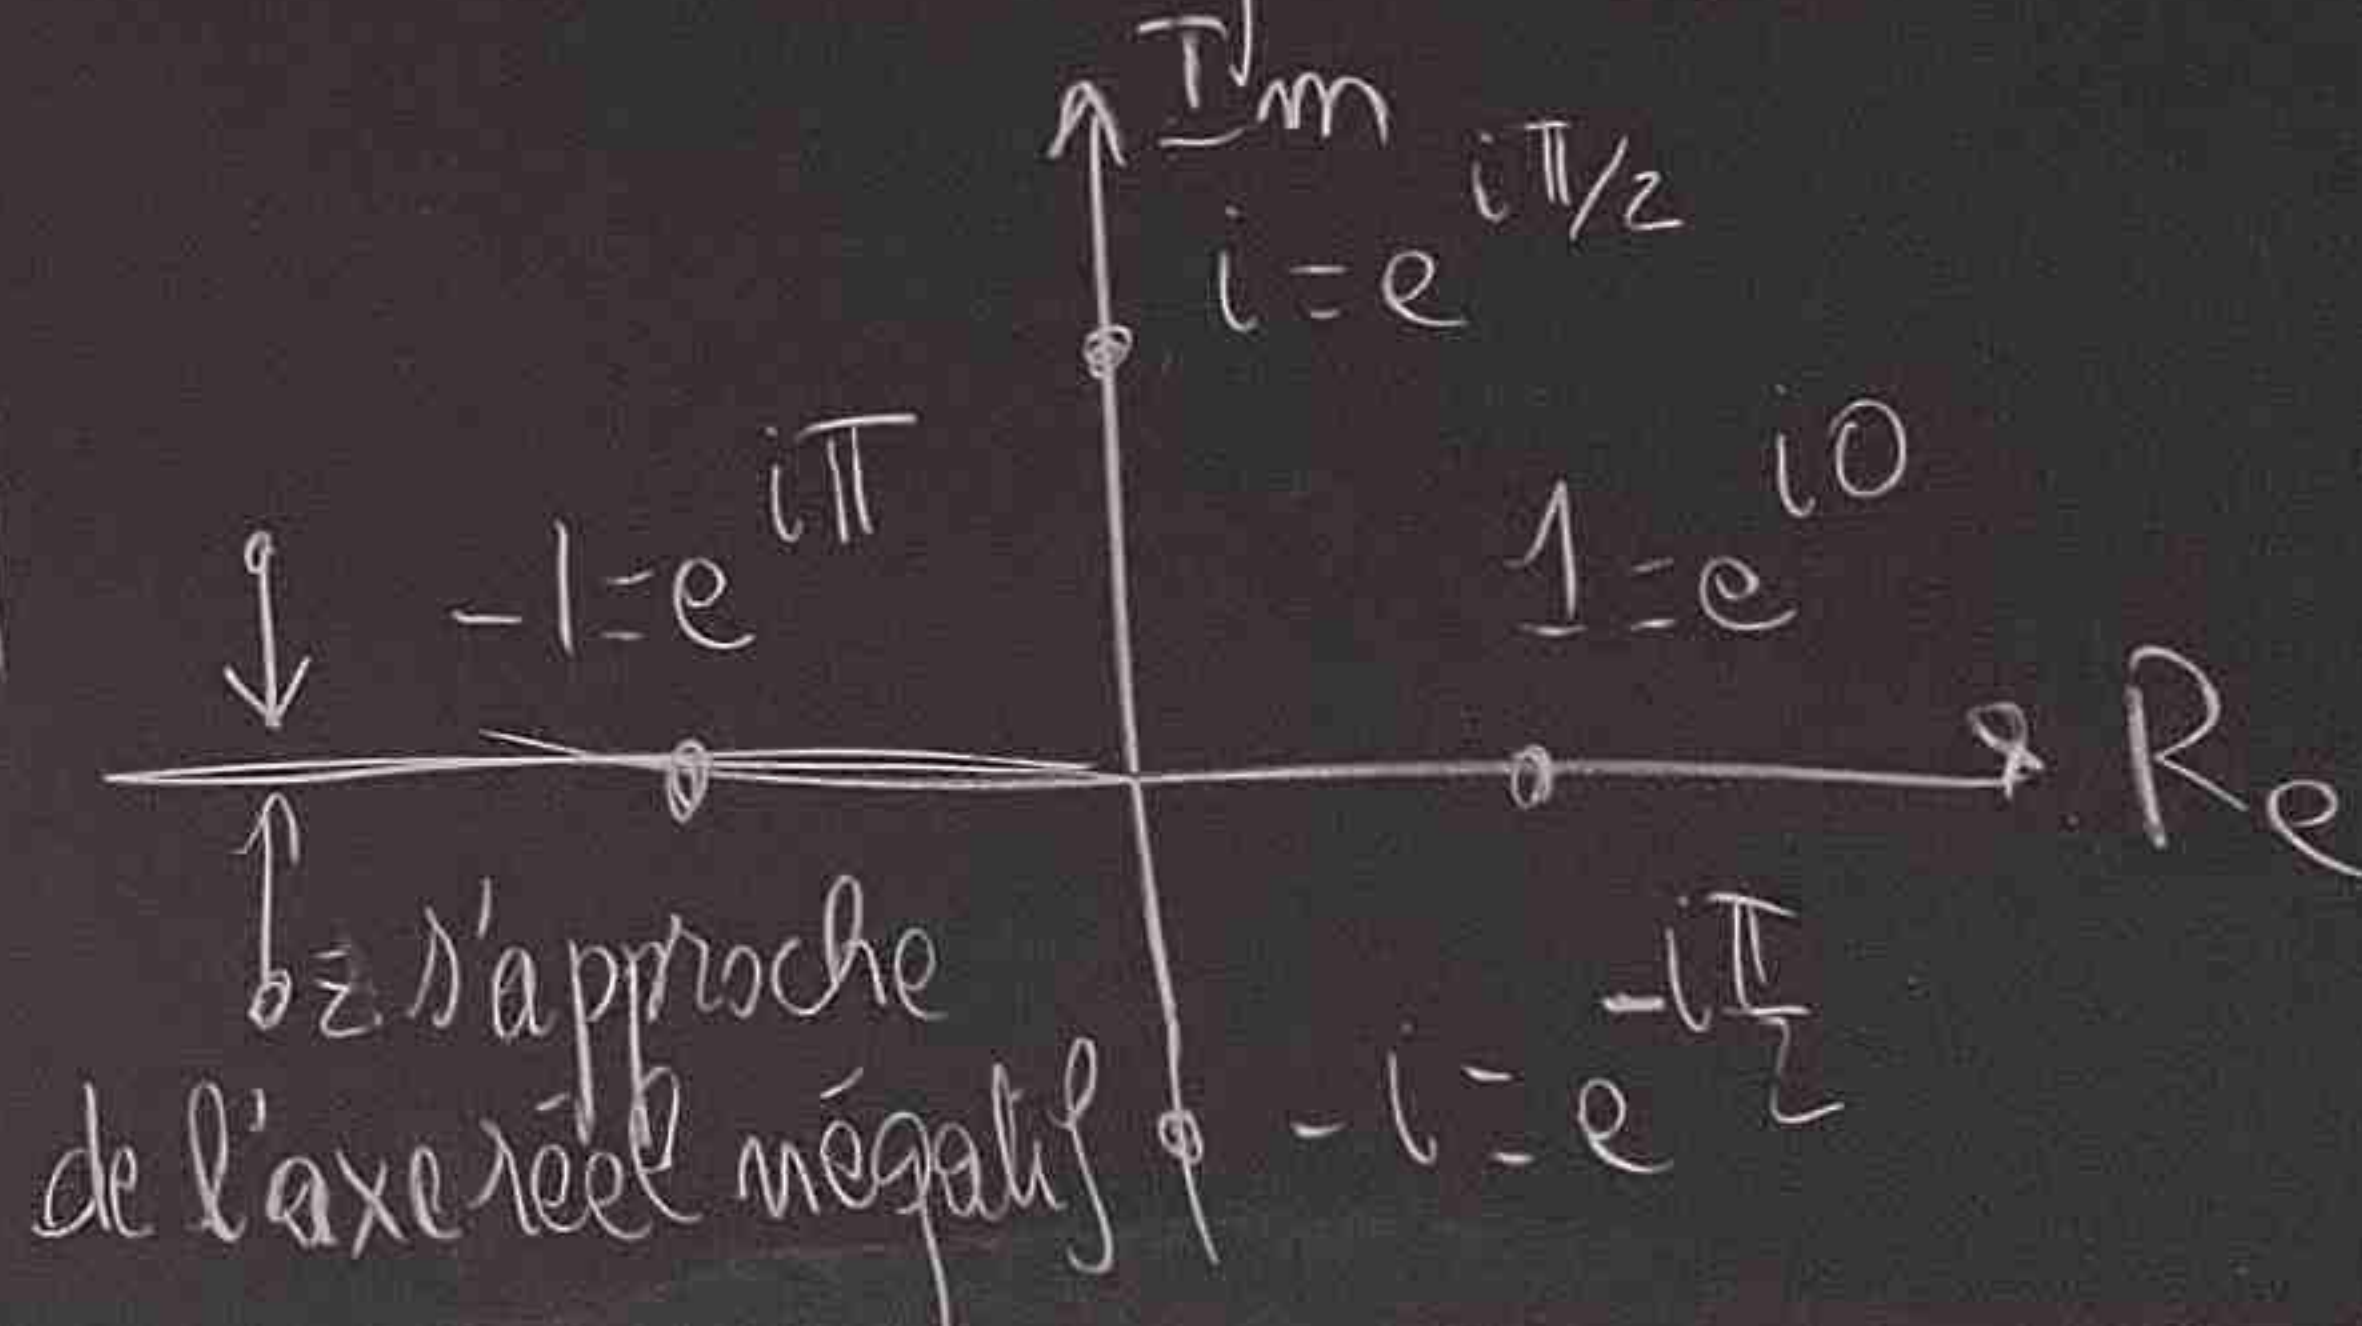 Im
i = e^{iπ/2}
-1 = e^{iπ}
1 = e^{i0}
Re
z s'approche
de l'axe réel négatif
-i = e^{-iπ/2}